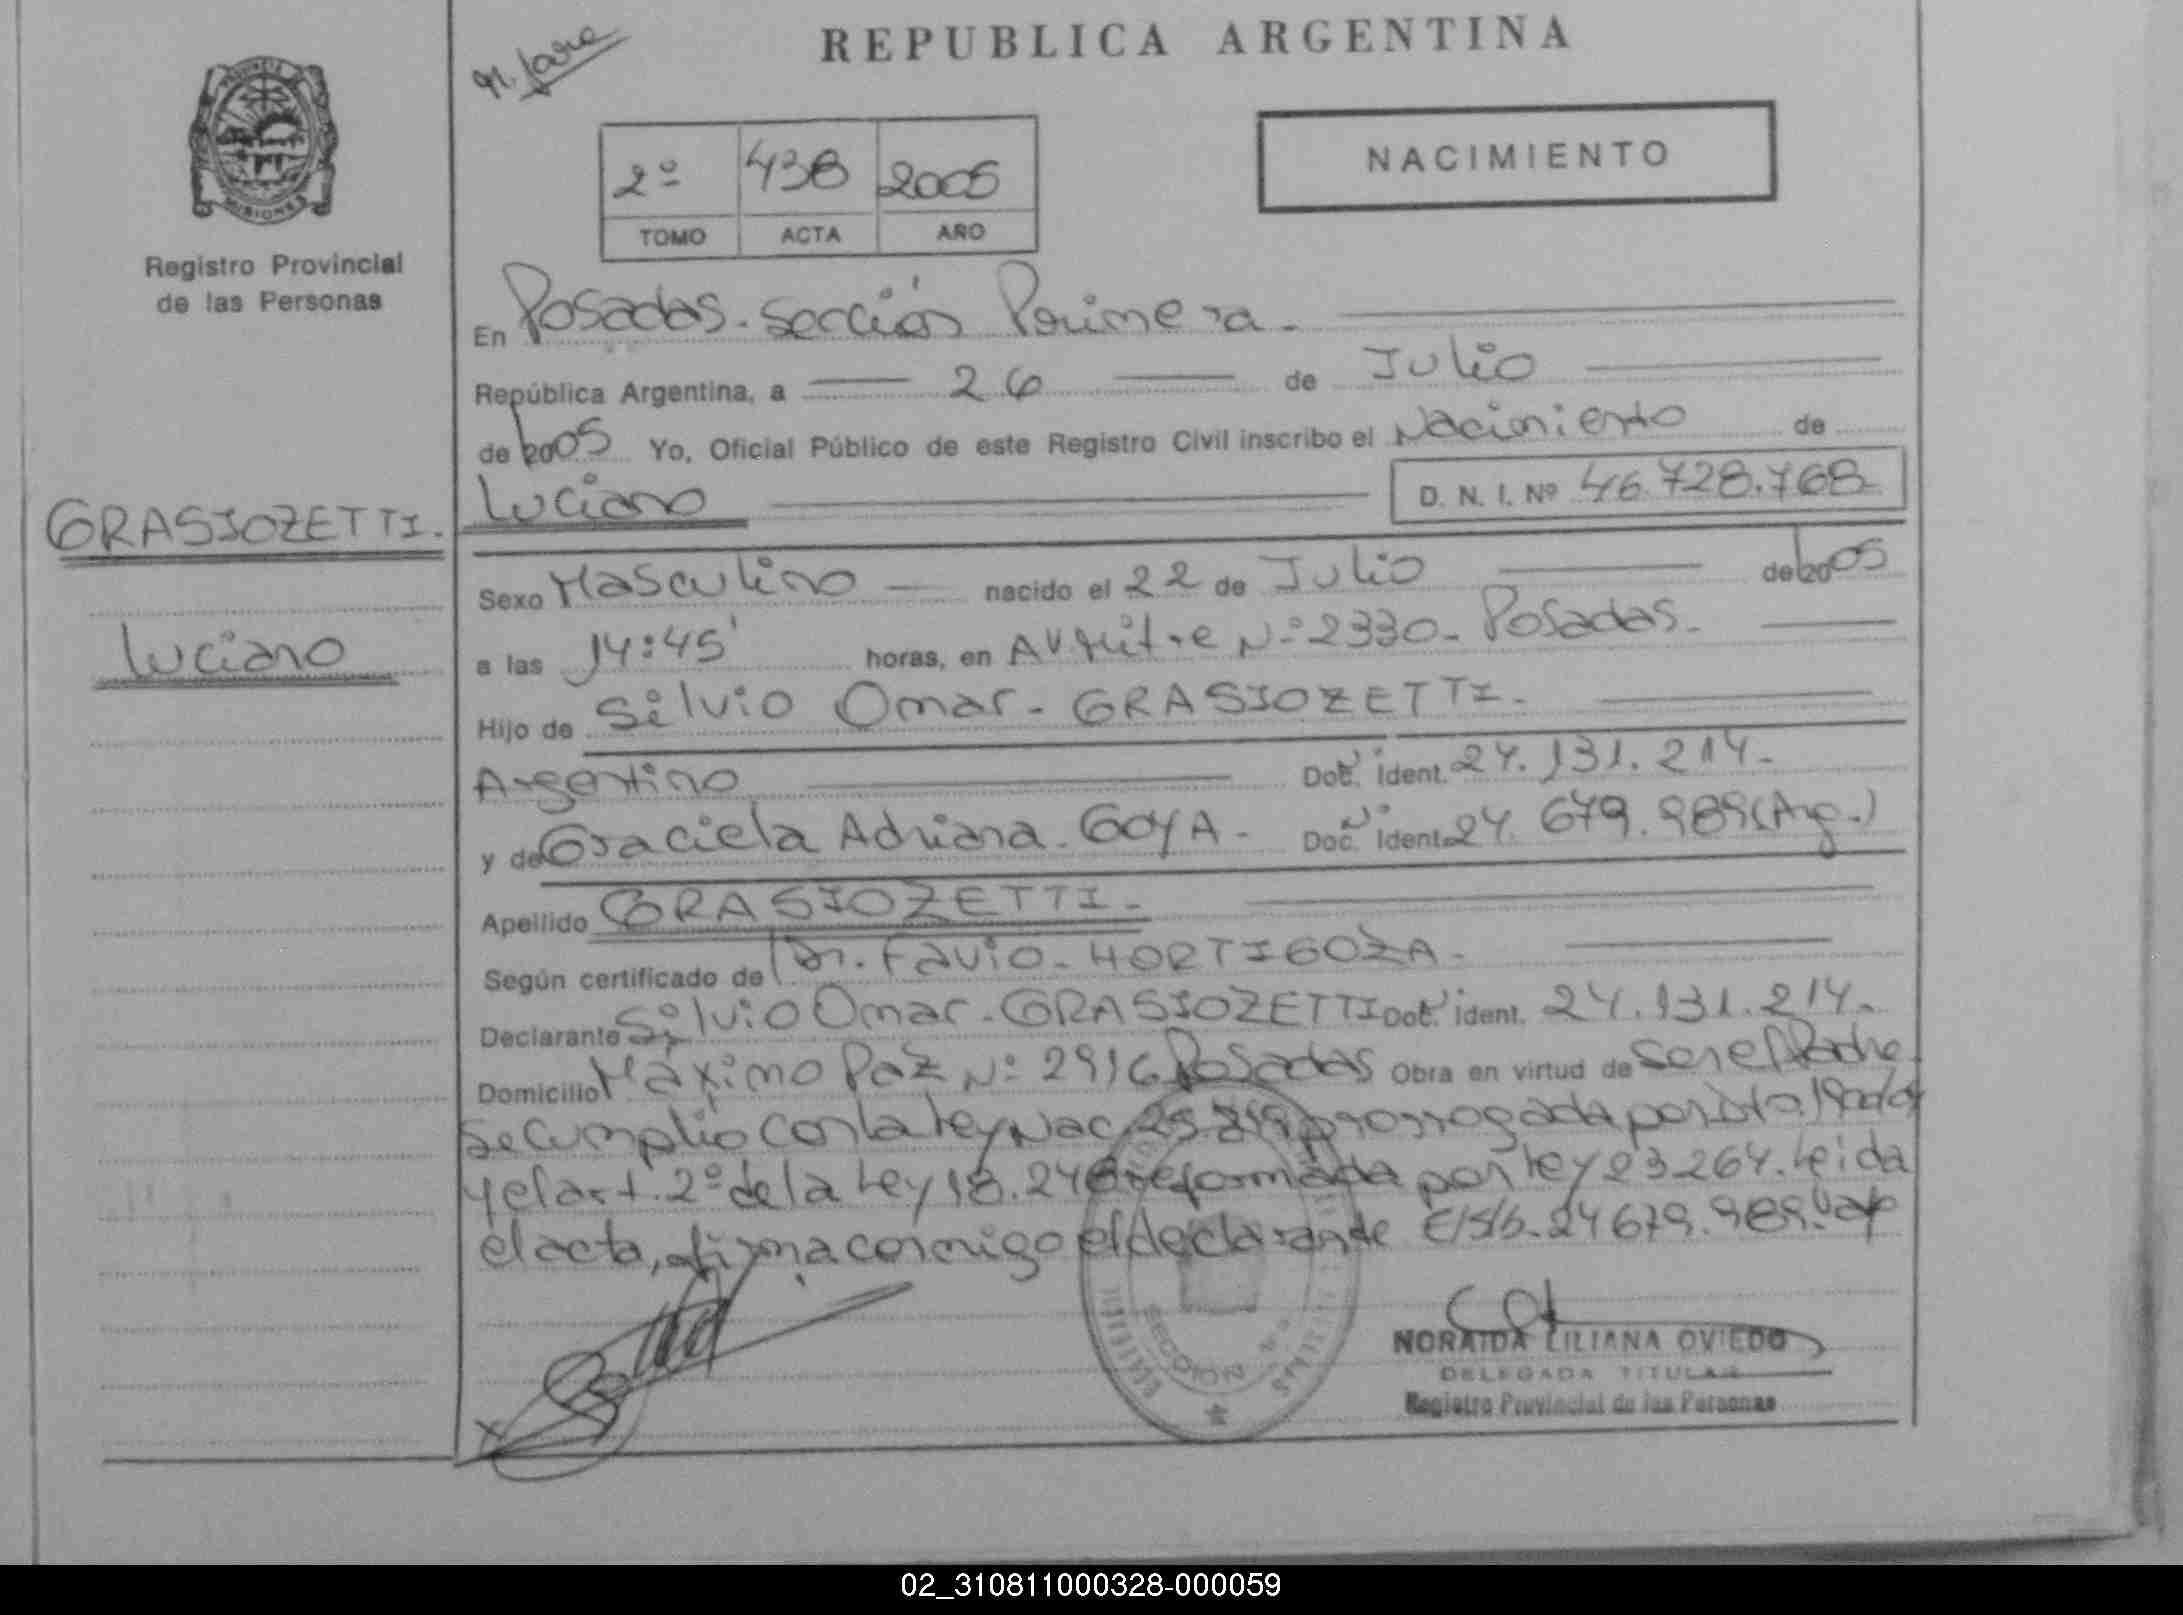 REPUBLICA ARGENTINA
PROVINCIA
MISIONES
Registro Provincial
de las Personas
NACIMIENTO
2º 438 2005
TOMO ACTA AÑO
En Posadas. Sección Primera.
República Argentina, a 26 de Julio
de 2005 Yo, Oficial Público de este Registro Civil inscribo el Nacimiento de
Luciano D. N. I. Nº 46.728.768
GRASIOZETTI.
Luciano
Sexo Masculino nacido el 22 de Julio de 2005
a las 14:45' horas, en Av Mitre Nº 2330. Posadas.
Hijo de Silvio Omar. GRASIOZETTI.
Argentino Doc. Ident. 24.131.214.
y de Graciela Adriana. GOYA. Doc. Ident. 24.679.989 (Arg.)
Apellido GRASIOZETTI.
Según certificado de Dr. Favio. HORTIGOZA.
Declarante Silvio Omar. GRASIOZETTI Doc. ident. 24.131.214.
Domicilio Máximo Paz Nº 2916 Posadas Obra en virtud de Ser el Padre.
Se cumplió con la ley Nac. prorrogada por
y el art. 2º de la Ley 18.248 reformada por ley 23264. Leida
el acta, firma conmigo el declarante E/s/b. 24679.989. Vale
SECCION
NORAIDA LILIANA OVIEDO
DELEGADA TITULAR
Registro Provincial de las Personas
02_310811000328-000059